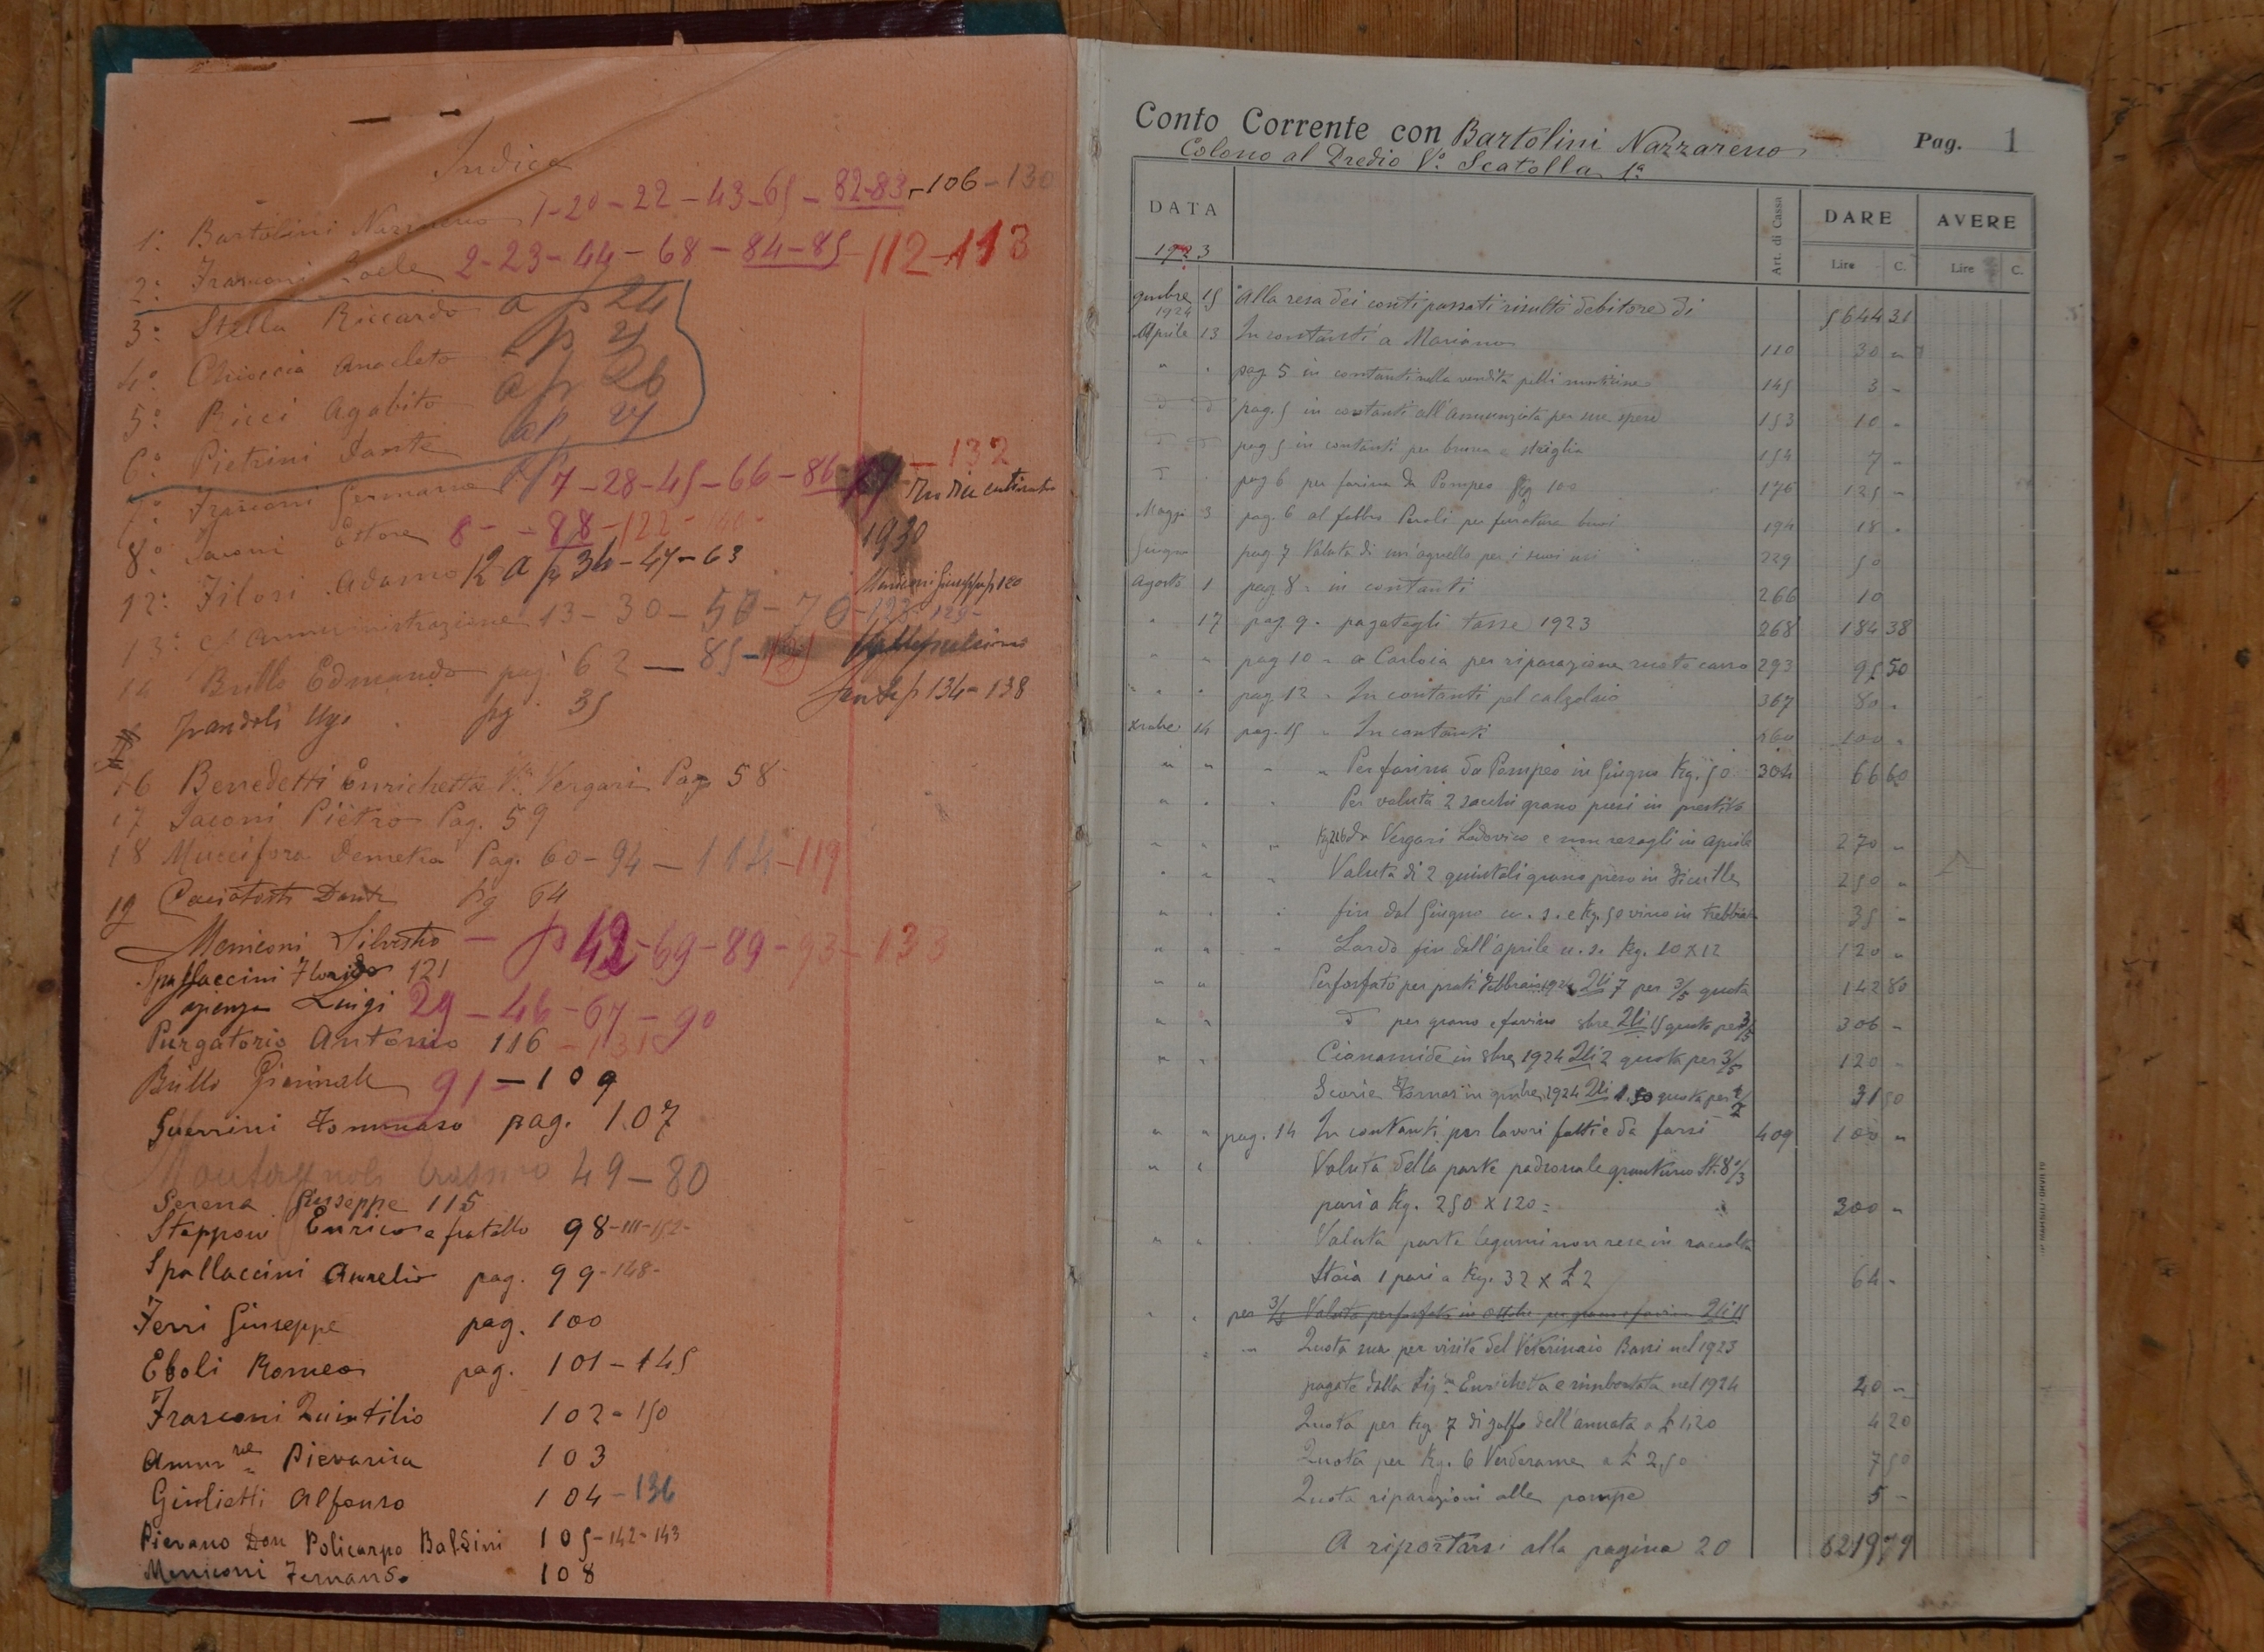 Indice
1º Bartolini Nazzareno 1-20-22-43-65-82-83-106-130
2º Frasconi 2-23-44-68-84-85-112-113
3º Stella Riccardo a p 24
4º Chioccia Anacleto a p
5º Ricci Agabito a p 26
6º Pietrini Dante a p
7º Frasconi Germano 7-28-45-66-86 -132
1930
8º Iaconi Ettore 8- -88-122-
12º Filosi Adamo 12 a p 34-47-63
Meniconi Giuseppe p 120
13º Amministrazione 13-30-50-70
14 Brillo Edmondo pag. 62-85-
p 134-138
Ugo pg. 35
16 Benedetti Enrichetta Vª Vergari Pag 58
17 Iaconi Pietro Pag. 59
18 Muccifora Demetra Pag. 60-94-114-119
19 Cacciatosti Dante pg 64
Meniconi Silvestro - p 42-69-89-93-133
Spallaccini Florido 121
Luigi 29-46-67-90
Purgatorio Antonio 116-131
Brillo 91-109
Guerrini Tommaso pag. 107
49-80
Serena Giuseppe 115
Stopponi Enrico e fratello 98-111-152-
Spallaccini Aurelio pag. 99-148-
Ferri Giuseppe pag. 100
Eboli Romeo pag. 101-145
Frasconi Quintilio 102-150
Ammne Pievania 103
Giulietti Alfonso 104-136
Pievano Don Policarpo Baldini 105-142-143
Meniconi Fernando 108
Conto Corrente con Bartolini Nazzareno Pag. 1
Colono al Predio Vº Scatolla 1ª
DATA Art. di Cassa DARE AVERE
1923 Lire C. Lire C.
9mbre 15 Alla resa dei conti passati risultò debitore di 5644 31
1924
Aprile 13 In contanti a Mariano 110 30 "
" " pag 5 in contanti nella vendita pelli 145 3 -
d d pag. 5 in contanti all'Annunziata per sue spese 153 10 -
d d pag 5 in contanti per brusca e striglia 154 7 -
d " pag 6 per farina da Pompeo Kg 100 176 125 -
Maggio 3 pag. 6 al fabbro Peroli per ferratura buoi 194 18 -
Giugno pag 7 Valuta di un'agnello per i suoi usi 229 50
Agosto 1 pag 8 - in contanti 266 10
" 17 pag 9 - pagategli tasse 1923 268 184 38
" " pag 10 - a Carloia per riparazione ruote carro 293 95 50
" " pag 12 - In contanti pel calzolaio 367 80 -
Xmbre 14 pag. 15 - In contanti 100 -
" " - " Per farina da Pompeo in Giugno Kg. 50 304 66 60
" " " Per valuta 2 sacchi grano presi in prestito
" " " Kg 216 da Vergari Lodovico e non resogli in aprile 270 -
" " " Valuta di 2 quintali grano preso in Ficulle 250 "
" " " fin dal Giugno u. s. e Kg. 50 vino in trebbia 35 -
" " " Lardo fin dall'aprile u. s. Kg. 10 X 12 120 "
" " Perfosfato per prati febbraio 1924 Qli 7 per 3/5 quota 142 80
" " d per grano e favino 8bre Qli 15 quota per 3/5 306 -
" " Cianamide in 8bre 1924 Qli 2 quota per 3/5 120 -
Scorie Tomas in 9mbre 1924 Qli 1.50 quota per 1/2 31 50
" " pag. 14 In contanti per lavori fatti e da farsi 409 100 "
" " Valuta della parte padronale granturco St. 8 1/3
pari a Kg. 250 X 120 = 300 "
" " Valuta parte legumi non resa in raccolta
Staia 1 pari a Kg. 32 X £ 2 64 -
" " per 3/5 Valuta perfosfato in Ottobre per grano e favino Qli 15
" " Quota sua per visite del Veterinario Bassi nel 1923
pagate dalla Sigra Enrichetta e rimborsata nel 1924 20 "
Quota per Kg. 7 di zolfo dell'annata a £ 1,20 4 20
Quota per Kg. 6 Verderame a £ 2,50 7 50
Quota riparazioni alle pompe 5 -
A riportarsi alla pagina 20 8219 79